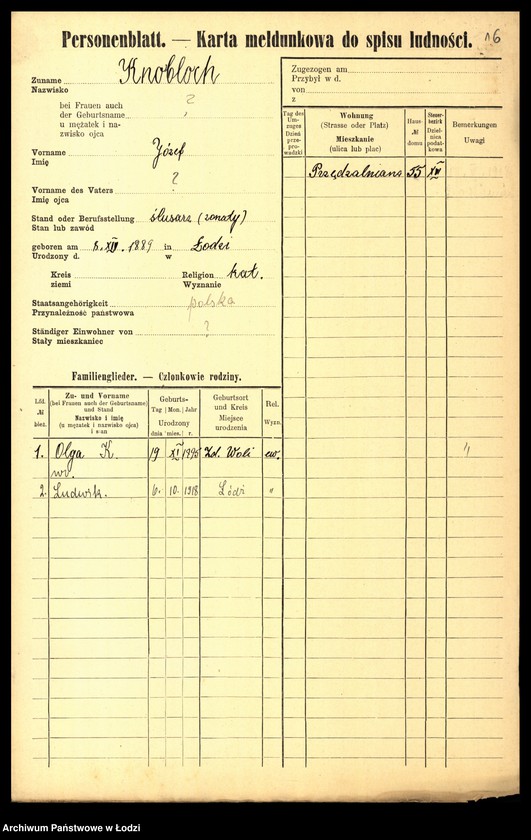 Personenblatt. — Karta meldunkowa do spisu ludności.
16
Zuname Knobloch
Nazwisko
bei Frauen auch ?
der Geburtsname
u mężatek i na-
zwisko ojca
Vorname Józef
Imię
Vorname des Vaters ?
Imię ojca
Stand oder Berufsstellung ślusarz (żonaty)
Stan lub zawód
geboren am 6. XII. 1889 in Łodzi
Urodzony d. w
Kreis Religion kat.
ziemi Wyznanie
Staatsangehörigkeit polska
Przynależność państwowa
Ständiger Einwohner von ?
Stały mieszkaniec
Familienglieder. — Członkowie rodziny.
Lfd. № bież.
Zu- und Vorname
(bei Frauen auch der Geburtsname)
und Stand
Nazwisko i imię
(u mężatek i nazwisko ojca)
i stan
Geburts-
Tag Mon. Jahr
Urodzony
dnia mies. r.
Geburtsort
und Kreis
Miejsce
urodzenia
Rel.
Wyzn.
1. Olga K. 19 XI 1995 Zd. Woli ew.
2. Ludwik. 6. 10. 1918 Łódź "
Zugezogen am
Przybył w d.
von
z
Tag des
Um-
zuges
Dzień
prze-
pro-
wadzki
Wohnung
(Strasse oder Platz)
Mieszkanie
(ulica lub plac)
Haus-
№
domu
Steuer-
bezirk
Dziel-
nica
podat-
kowa
Bemerkungen
Uwagi
Przędzalniana 55 XIV
Archiwum Państwowe w Łodzi